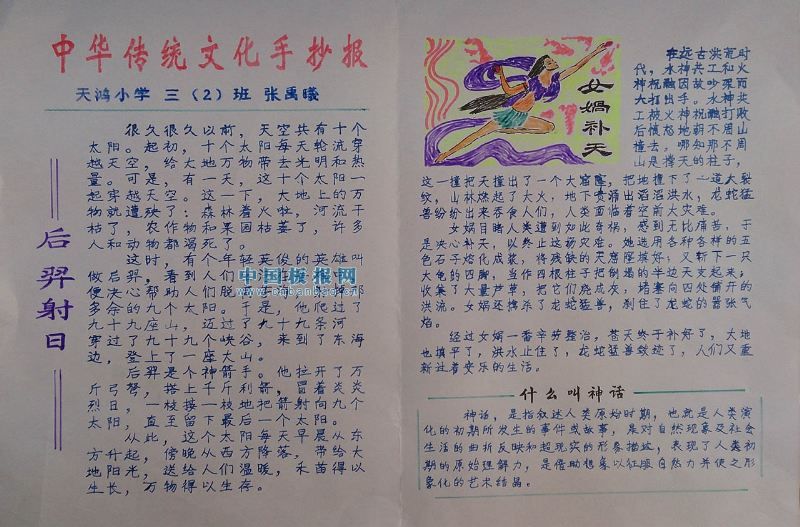 中华传统文化手抄报
天鸿小学 三（2）班 张禹曦
后羿射日
很久很久以前，天空共有十个
太阳。起初，十个太阳每天轮流穿
越天空，给大地万物带去光明和热
量。可是，有一天，这十个太阳一
起穿越天空。这一下，大地上的万
物就遭殃了：森林着火啦，河流干
枯了，农作物和果园枯萎了，许多
人和动物都渴死了。
这时，有个年轻英俊的英雄叫
做后羿，看到人们
便决心帮助人们脱
多余的九个太阳。于是，他爬过了
九十九座山，迈过了九十九条河
穿过了九十九个峡谷，来到了东海
边，登上了一座大山。
后羿是个神箭手。他拉开了万
斤弓弩，搭上千斤利箭，冒着炎炎
烈日，一枝接一枝地把箭射向九个
太阳，直至留下最后一个太阳。
从此，这个太阳每天早晨从东
方升起，傍晚从西方降落，带给大
地阳光，送给人们温暖，禾苗得以
生长，万物得以生存。
中国板报网
女娲补天
在远古洪荒时
代，水神共工和火
神祝融因故吵架而
大打出手。水神共
工被火神祝融打败
后愤怒地朝不周山
撞去，哪知那不周
山是撑天的柱子，
这一撞把天撞出了一个大窟窿，把地撞下了一道大裂
纹，山林燃起了大火，地下贲涌出滔滔洪水，龙蛇猛
兽纷纷出来吞食人们，人类面临着空前大灾难。
女娲目睹人类遭到如此奇祸，感到无比痛苦，于
是决心补天，以终止这场灾难。她选用各种各样的五
色石子熔化成浆，将残缺的天窟窿填好；又斩下一只
大龟的四脚，当作四根柱子把倒塌的半边天支起来；
收集了大量芦草，把它们烧成灰，堵塞向四处铺开的
洪流。女娲还擒杀了龙蛇猛兽，刹住了龙蛇的嚣张气
焰。
经过女娲一番辛劳整治，苍天终于补好了，大地
也填平了，洪水止住了，龙蛇猛兽敛迹了，人们又重
新过着安乐的生活。
什么叫神话
神话，是指叙述人类原始时期，也就是人类演
化的初期所发生的事件或故事，是对自然现象及社会
生活的曲折反映和超现实的形象描述，表现了人类初
期的原始理解力，是借助想象以征服自然力并使之形
象化的艺术结晶。